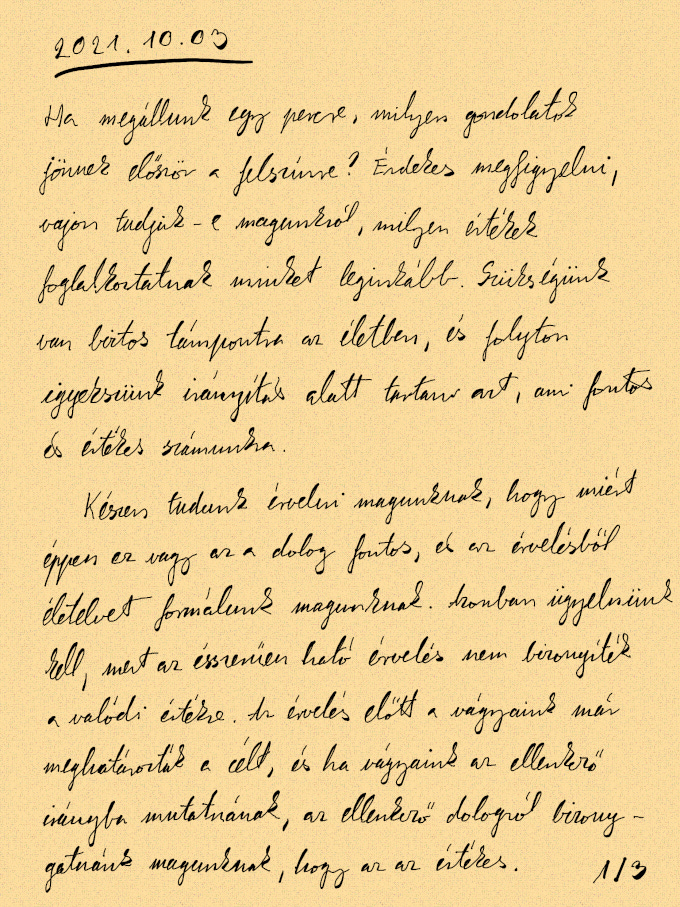 2021.10.03
Ha megállunk egy percre, milyen gondolatok
jönnek először a felszínre? Érdekes megfigyelni,
vajon tudjuk-e magunkról, milyen értékek
foglalkoztatnak minket leginkább. Szükségünk
van biztos támpontra az életben, és folyton
igyekszünk irányítás alatt tartani azt, ami fontos
és értékes számunkra.
Készen tudunk érvelni magunknak, hogy miért
éppen ez vagy az a dolog fontos, és az érvelésből
életelvet formálunk magunknak. Azonban ügyelnünk
kell, mert az ésszerűen ható érvelés nem bizonyíték
a valódi értékre. Az érvelés előtt a vágyaink már
meghatározták a célt, és ha vágyaink az ellenkező
irányba mutatnának, az ellenkező dologról bizony-
gatnánk magunknak, hogy az az értékes.
1/3